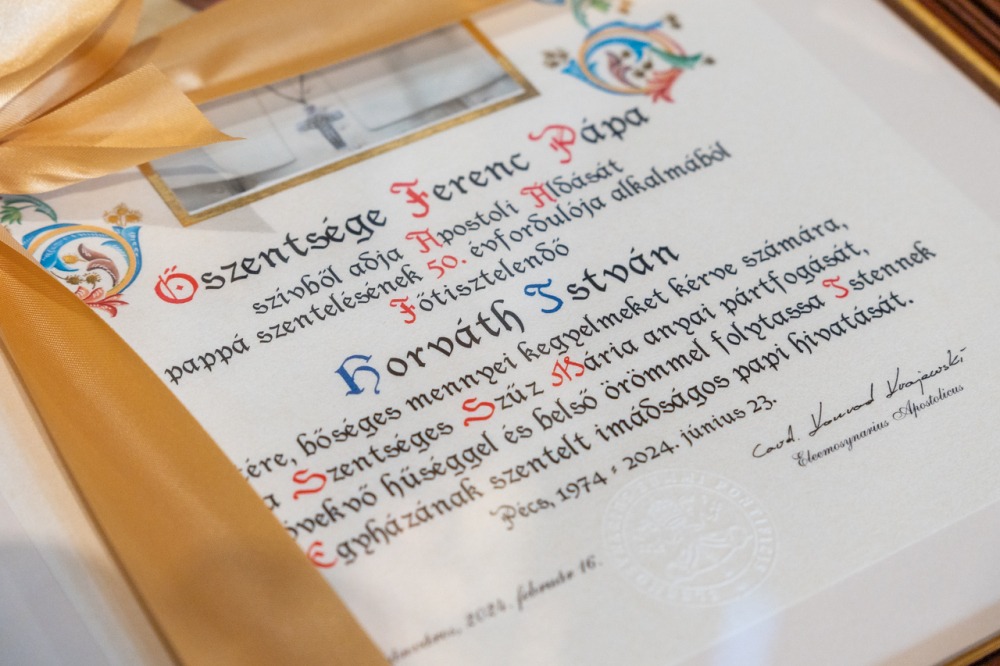 Őszentsége Ferenc Pápa
szívből adja Apostoli Áldását
pappá szentelésének 50. évfordulója alkalmából
Főtisztelendő
Horváth István
bőséges mennyei kegyelmeket kérve számára,
a Szentséges Szűz Mária anyai pártfogását,
hűséggel és belső örömmel folytassa Istennek
Egyházának szentelt imádságos papi hivatását.
Pécs, 1974 - 2024. június 23.
Card. Konrad Krajewski
Eleemosynarius Apostolicus
2024. február 16.